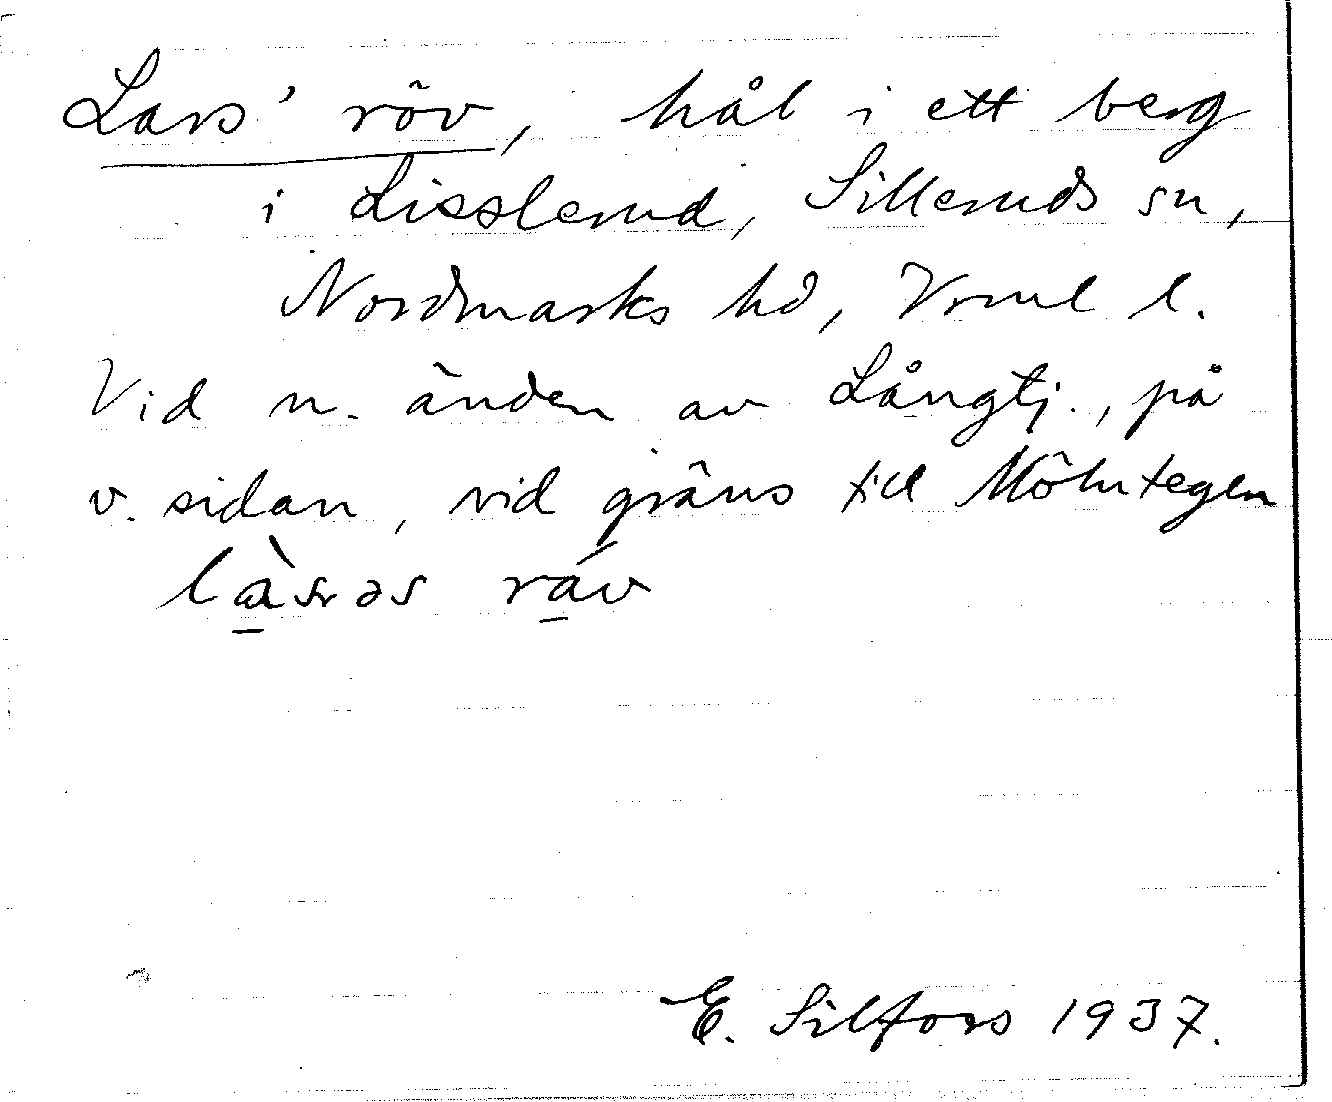 Lars' röv, hål i ett berg
i Lisslerud, Silleruds sn,
Nordmarks hd, Vrml l.
Vid n. änden av Långtj., på
v. sidan, vid gräns till Mölntegen
E. Silfors 1937.